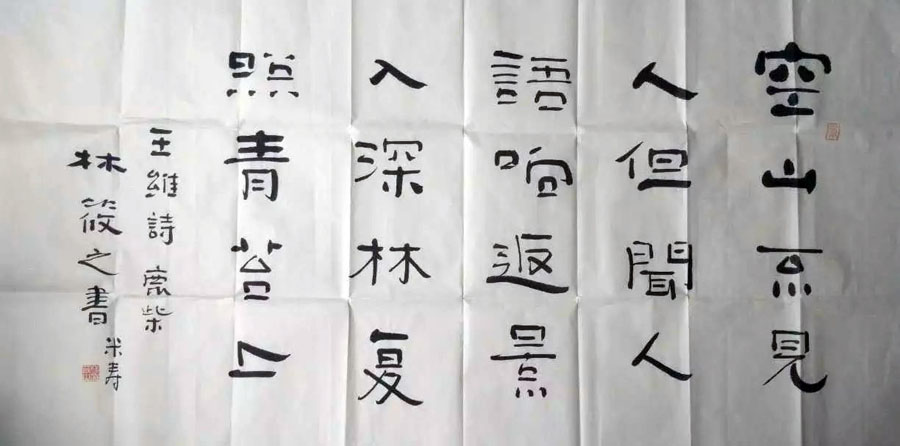 空山不見
人但聞人
語响返景
入深林复
照青苔上
王維詩 鹿柴
林筱之書 米寿